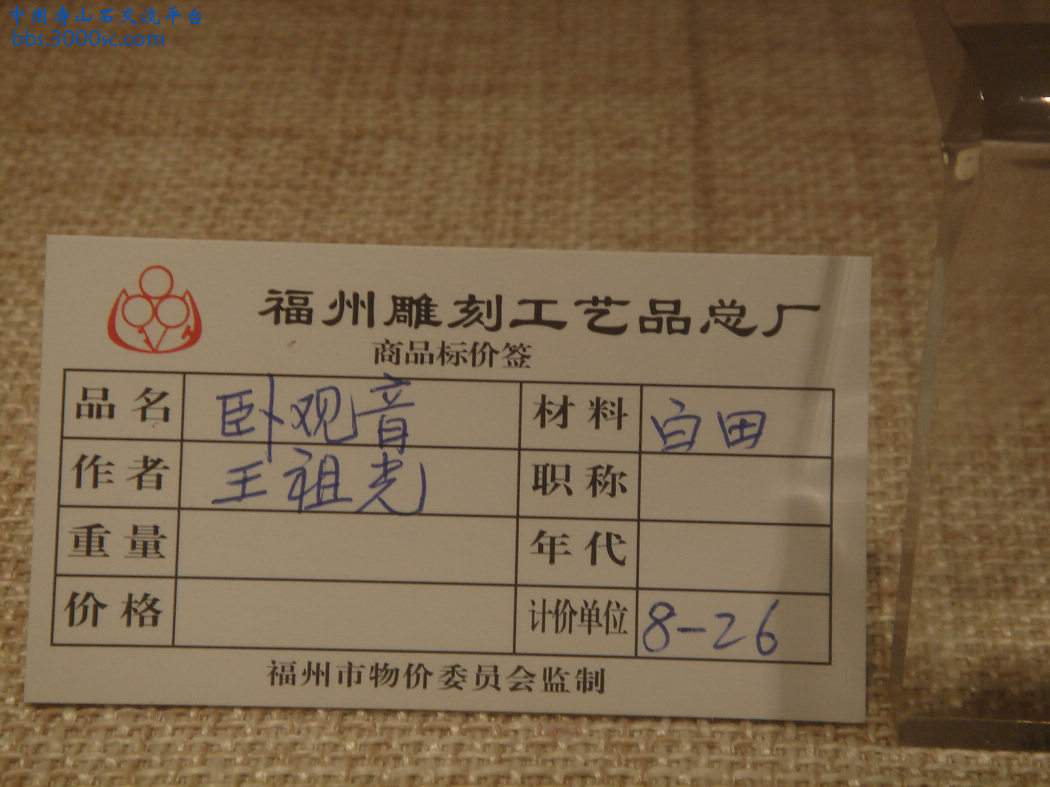 中国寿山石交流平台
bbs.3000ic.com
福州雕刻工艺品总厂
商品标价签
品名 卧观音 材料 白田
作者 王祖光 职称
重量 年代
价格 计价单位 8-26
福州市物价委员会监制